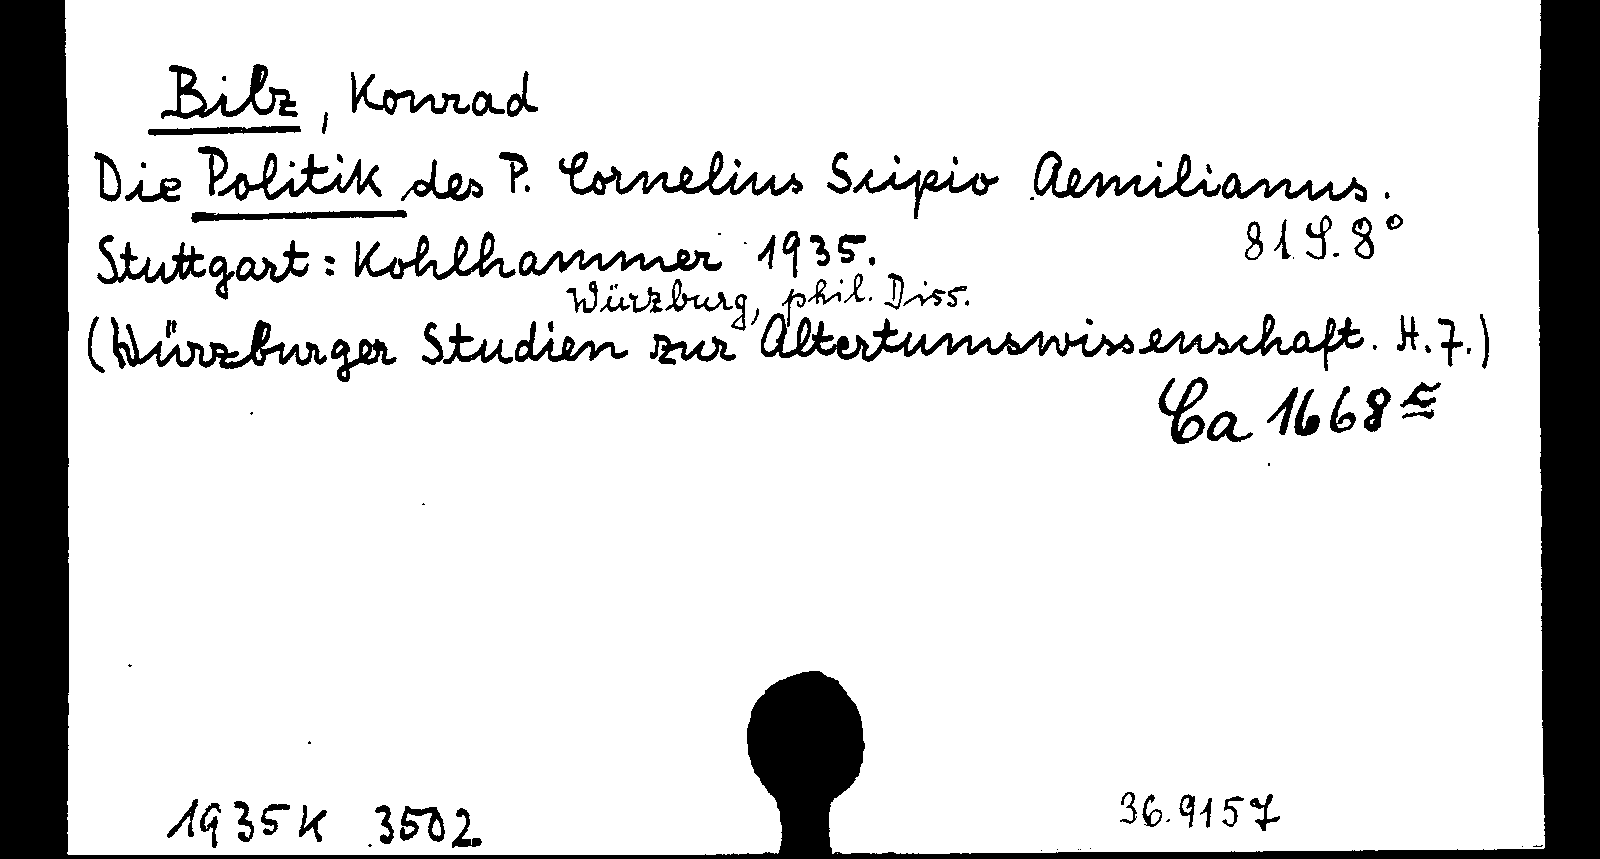 Bilz, Konrad
Die Politik des P. Cornelius Scipio Aemilianus.
81 S. 8°
Stuttgart: Kohlhammer 1935.
Würzburg, phil. Diss.
(Würzburger Studien zur Altertumswissenschaft. H. 7.)
Ca 1668
1935 K 3502.
36.9157